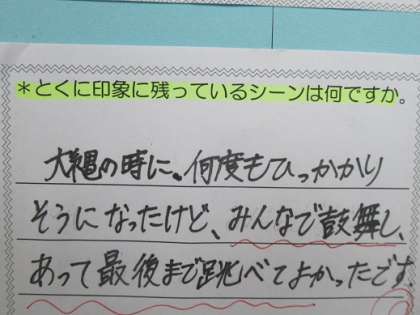 ＊とくに印象に残っているシーンは何ですか。
大縄の時に。何度もひっかかり
そうになったけど、みんなで鼓舞し、
あって最後まで跳べてよかったです。